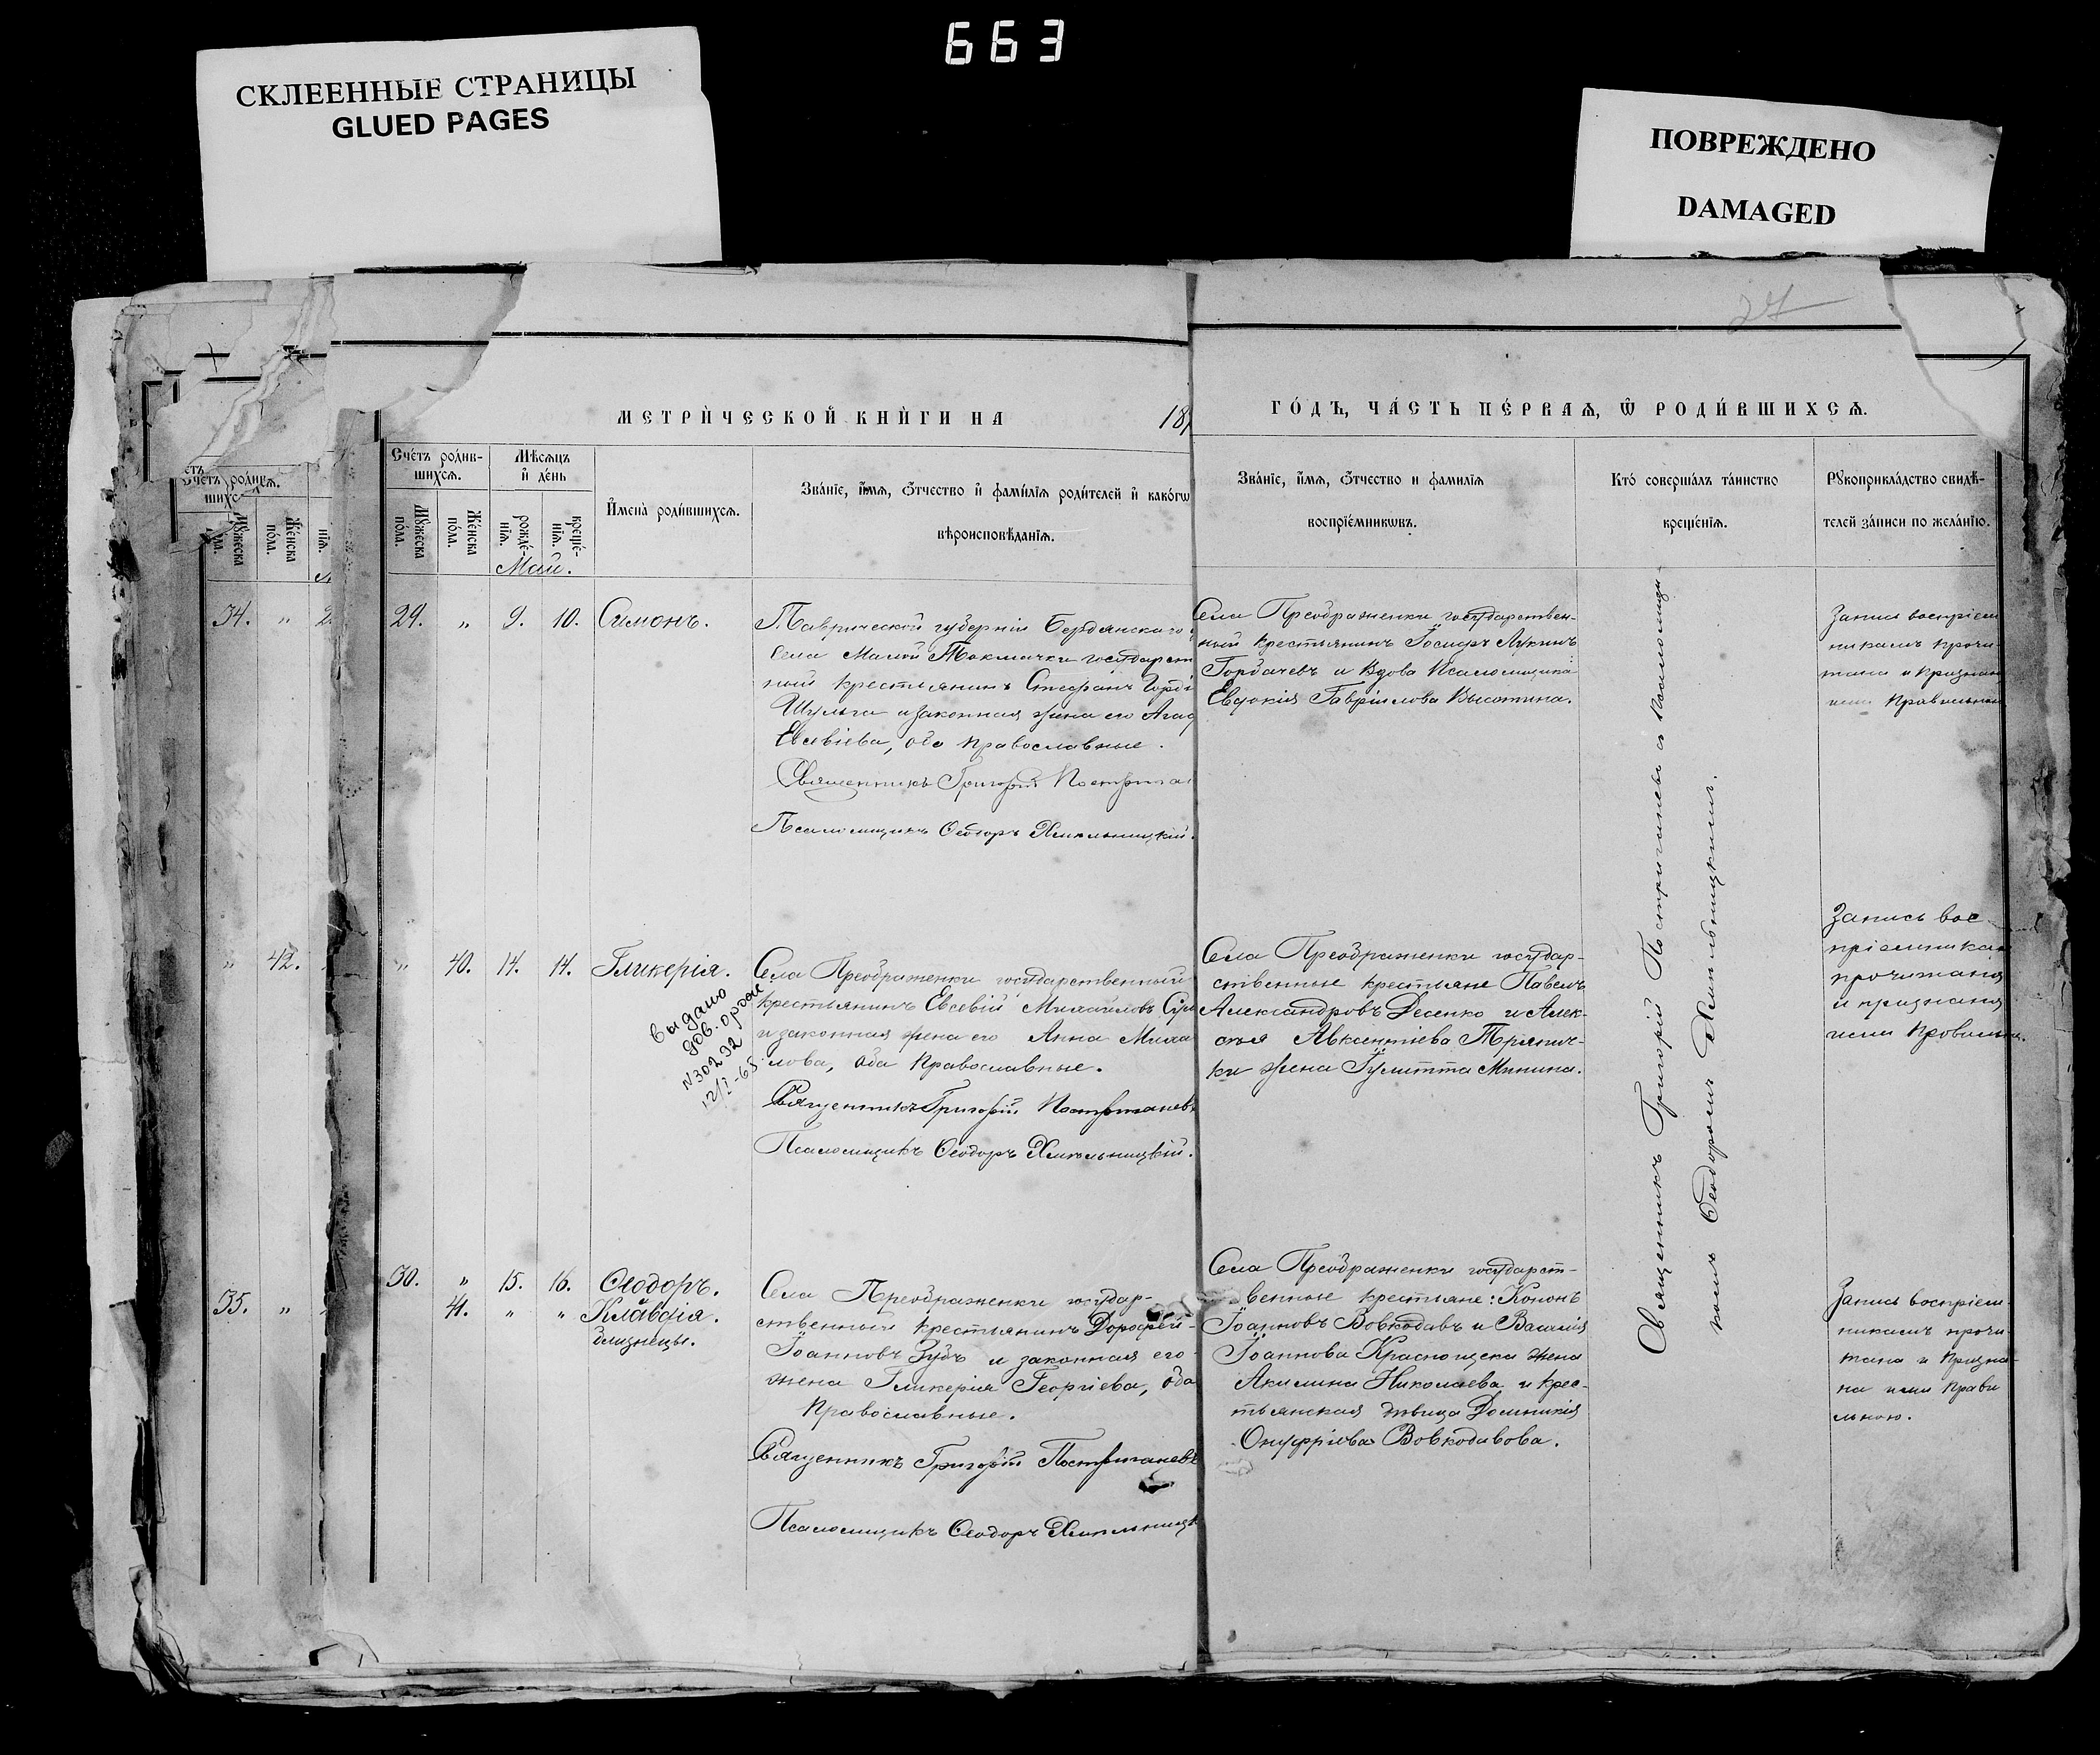 663
СКЛЕЕННЫЕ СТРАНИЦЫ
GLUED PAGES
ПОВРЕЖДЕНО
DAMAGED
27
МЕТРИ́ЧЕСКОЙ КНИ́ГИ НА 18
ГО́ДЪ, ЧА́СТЬ ПЕ́РВАѦ, Ѿ РОДИ́ВШИХСѦ.
Сче́тъ роди́в-
шихсѧ.
Мѣ́сѧцъ
и҆ де́нь
Мꙋ́жеска
по́ла.
Же́нска
по́ла.
рожде́-
нїѧ.
креще́-
нїѧ.
И҆мена̀ роди́вшихсѧ.
Зва́нїе, и҆́мѧ, ѻ҆́тчество и҆ фами́лїѧ роди́телей и҆ како́гѡ
вѣроисповѣ́данїѧ.
Зва́нїе, и҆́мѧ, ѻ҆́тчество и фами́лїѧ
воспрїе́мникѡвъ.
Кто́ соверша́лъ та́инство
креще́нїѧ.
Рꙋкоприкла́дство свидѣ́-
телей за́писи по жела́нїю.
Май.
34. "
29. " 9. 10. Симонъ.
Таврической губерніи Бердянскаго
села Малой Токмачки государст
ный крестьянинъ Стефанъ Горді
Шульга и законная жена его Агаф
Евсевіева, оба православные.
Священникъ Григорій
Псаломщикъ Ѳеодоръ Хмельницкій.
Села Преображенки государствен-
ный крестьянинъ Іосифъ Лукинъ
Горбачевъ и Вдова Псаломщика
Евдокія Гавріилова Высотина.
Запись воспріем
никамъ прочи-
тана и признан
ими правильною
" 42.
" 40. 14. 14. Гликерія.
Выдано
N 30232
12/I-65
Села Преображенки государственный
крестьянинъ Евсевій Михаиловъ
и законная жена его Анна Миха
лова, оба православные.
Священникъ Григорій Постриганевъ
Псаломщикъ Ѳеодоръ Хмельницкій.
Села Преображенки государ-
ственные крестьяне Павелъ
Александровъ Десенко и Алек-
сѣя Авксентіева Прянич-
ки жена Іулитта Минина.
Запись вос-
пріемникам
прочитана
и признана
ими правильн.
Священникъ Григорій Постриганевъ съ Псаломщи-
комъ Ѳеодоромъ Хмельницкимъ.
35. "
30. " 15. 16. Ѳеодоръ.
41. " " Клавдія.
близнецы.
Села Преображенки государ-
ственный крестьянинъ Дорофей
Іоанновъ Зубъ и законная его
жена Гликерія Георгіева, оба
Православные.
Священникъ Григорій Постриганевъ
Псаломщикъ Ѳеодоръ Хмельницк
Села Преображенки государст-
венные крестьяне: Кононъ
Іоанновъ Вовкодавъ и Василія
Іоаннова Краснощека жена
Акилина Николаева и крес-
тьянская дѣвица Домникія
Онуфріева Вовкодавова.
Запись воспріем-
никамъ прочи-
тана и призна-
на ими прави
льною.